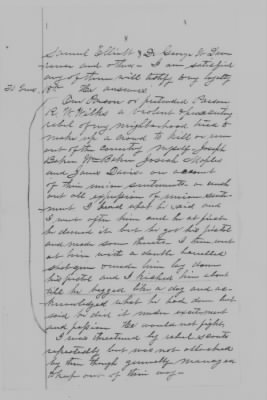 Samuel Elliott & Dr George W Daw
 and others - I am satisfied
any of them will testify my loyalty
To Ques. 18th He answers,
One Parson or pretended Parson
R. W. Wilks a violent & 
rebel of my neighborhood tried to
make up a crowd to kill or run
out of the country, myself, Joseph
Baker, Wm Baker, Josiah Maples
and James Davis on account
of their union sentiments or 
out all expression of union senti-
ment. I heard what he said and
I went after him and he at first
he denied it but he got his pistol
and made some threats. I then went
at him with a double barrelled
shotgun made him lay down
his pistol and I him about
till he begged like a dog and ac-
knowledged what he had done but
said he did it under excitement
and passion. He would not fight.
I was threatened by rebel scouts
repeatedly but was not molested
by them though generally managed
to keep out of their way